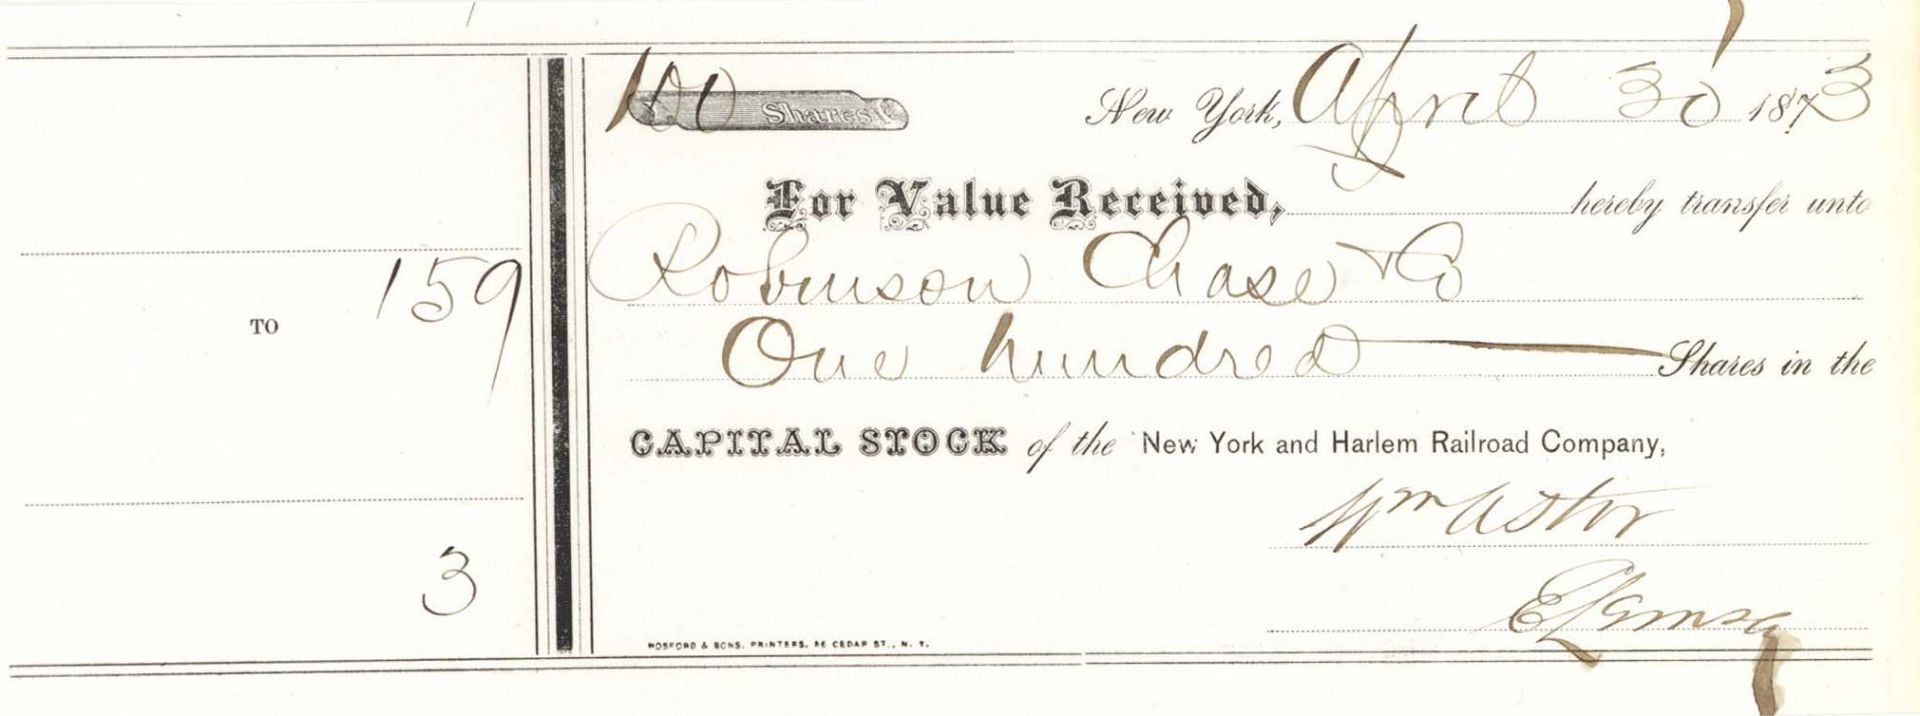 100 Shares
New York, April 30 1873
For Value Received, hereby transfer unto
Robinson Chase & Co
One hundred Shares in the
CAPITAL STOCK of the New York and Harlem Railroad Company,
Wm Astor
159
TO
3
HOSFORD & SONS, PRINTERS, CEDAR ST., N. Y.